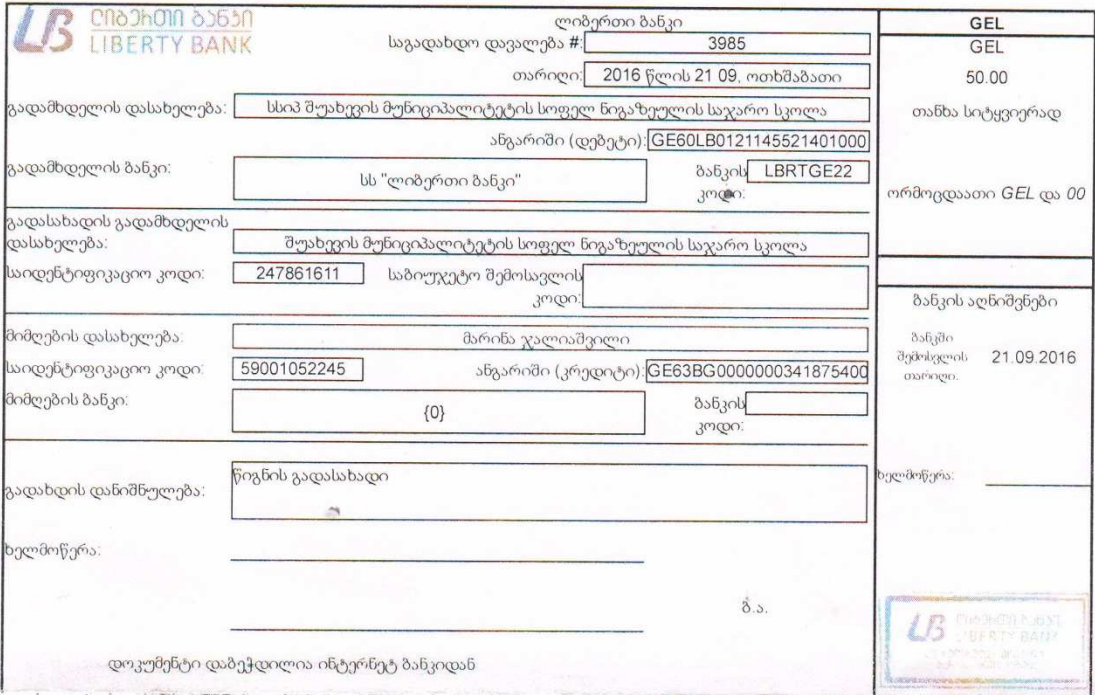 ლიბერთი ბანკი
LIBERTY BANK
ლიბერთი ბანკი
საგადახდო დავალება #: 3985
თარიღი: 2016 წლის 21 09, ოთხშაბათი
გადამხდელის დასახელება: სსიპ შუახევის მუნიციპალიტეტის სოფელ ნიგაზეულის საჯარო სკოლა
ანგარიში (დებეტი): GE60LB0121145521401000
გადამხდელის ბანკი: სს "ლიბერთი ბანკი" ბანკის კოდი: LBRTGE22
გადასახადის გადამხდელის
დასახელება: შუახევის მუნიციპალიტეტის სოფელ ნიგაზეულის საჯარო სკოლა
საიდენტიფიკაციო კოდი: 247861611 საბიუჯეტო შემოსავლის
კოდი:
მიმღების დასახელება: მარინა ჯალიაშვილი
საიდენტიფიკაციო კოდი: 59001052245 ანგარიში (კრედიტი): GE63BG0000000341875400
მიმღების ბანკი: {0} ბანკის
კოდი:
გადახდის დანიშნულება: წიგნის გადასახადი
ხელმოწერა:
ბ.ა.
დოკუმენტი დაბეჭდილია ინტერნეტ ბანკიდან
GEL
GEL
50.00
თანხა სიტყვიერად
ორმოცდაათი GEL და 00
ბანკის აღნიშვნები
ბანკში
შემოსვლის 21.09.2016
თარიღი.
ხელმოწერა:
ლიბერთი ბანკი
LIBERTY BANK